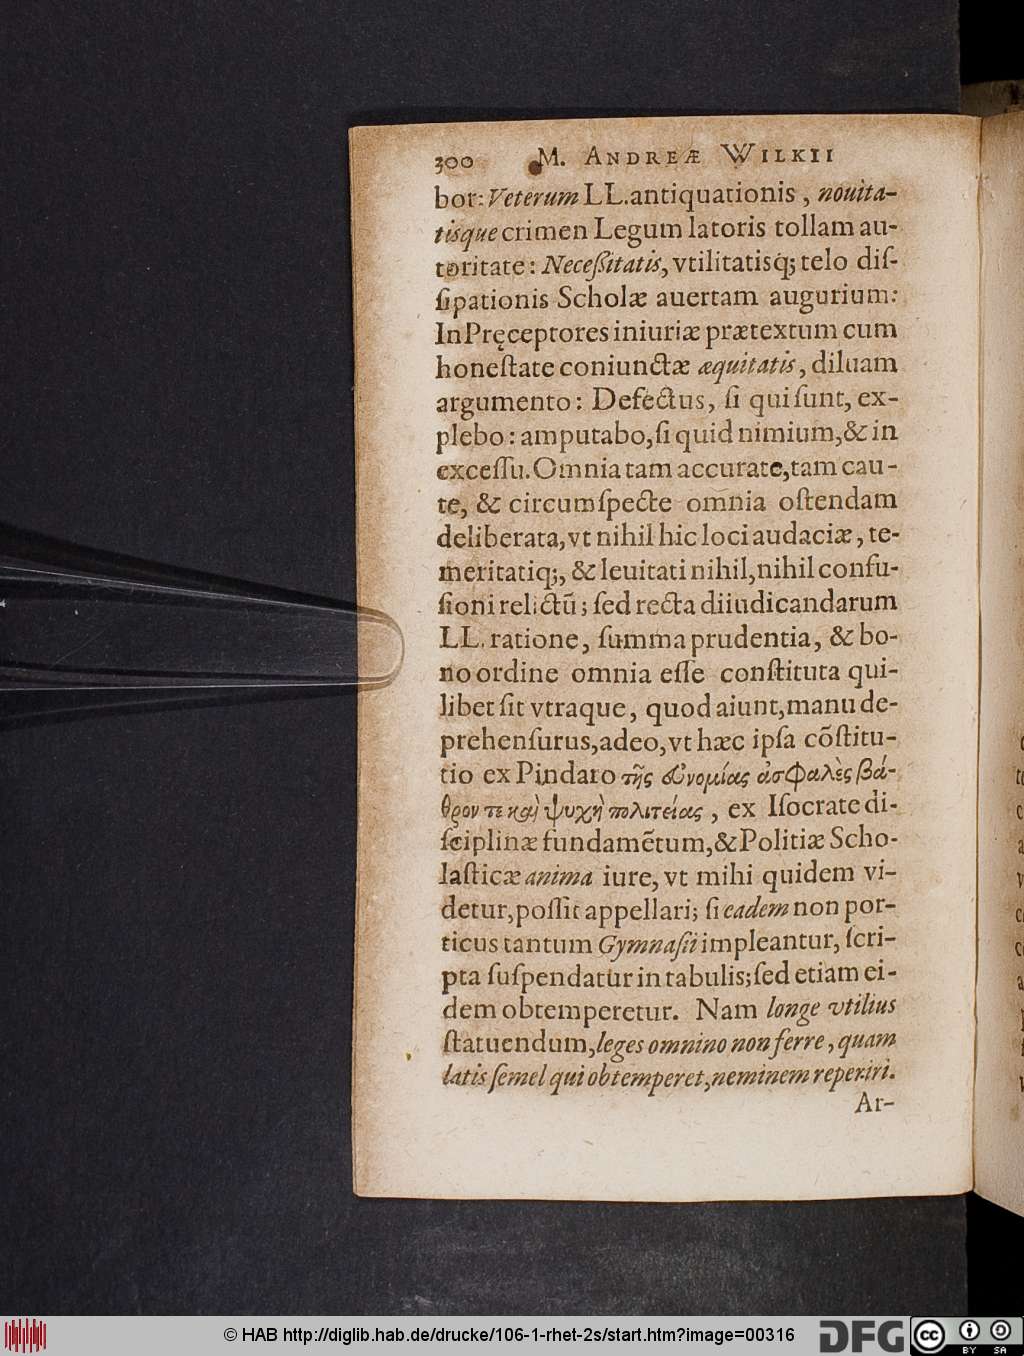 300 M. ANDREÆ WILKII
bor: Veterum LL. antiquationis, nouita-
tisque crimen Legum latoris tollam au-
toritate: Neceßitatis, vtilitatisq́; telo diſ-
ſipationis Scholæ auertam augurium:
In Pręceptores iniuriæ prætextum cum
honeſtate coniunctæ æquitatis, diluam
argumento: Defectus, ſi qui ſunt, ex-
plebo: amputabo, ſi quid nimium, & in
exceſſu. Omnia tam accurate, tam cau-
te, & circumſpecte omnia oſtendam
deliberata, vt nihil hic loci audaciæ, te-
meritatiq;, & leuitati nihil, nihil confu-
ſioni relictũ; ſed recta diiudicandarum
LL. ratione, ſumma prudentia, & bo-
no ordine omnia eſſe conſtituta qui-
libet ſit vtraque, quod aiunt, manu de-
prehenſurus, adeo, vt hæc ipſa cõſtitu-
tio ex Pindaro τῆς εὐνομίας ἀσφαλὲς βά-
θρον τε καὶ ψυχὴ πολιτείας, ex Iſocrate di-
ſciplinæ fundamẽtum, & Politiæ Scho-
laſticæ anima iure, vt mihi quidem vi-
detur, poſſit appellari; ſi eadem non por-
ticus tantum Gymnaſii impleantur, ſcri-
pta ſuſpendatur in tabulis; ſed etiam ei-
dem obtemperetur. Nam longe vtilius
ſtatuendum, leges omnino non ferre, quam
latis ſemel qui obtemperet, neminem reperiri.
Ar-
© HAB http://diglib.hab.de/drucke/106-1-rhet-2s/start.htm?image=00316
DFG
cc BY SA